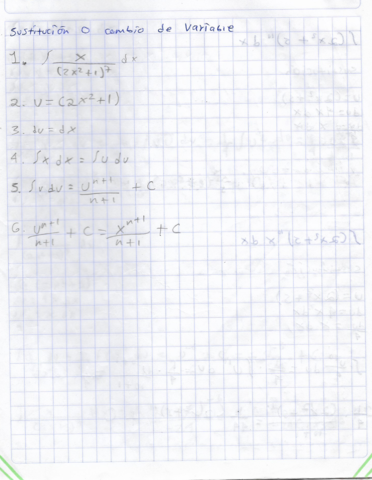 Sustitución o cambio de Variable
1. ∫ x/(2x²+1)⁷ dx
2. U=(2x²+1)
3. du=dx
4. ∫x dx = ∫u du
5. ∫u du = U^(n+1)/(n+1) + C
6. U^(n+1)/(n+1) + C = x^(n+1)/(n+1) + C